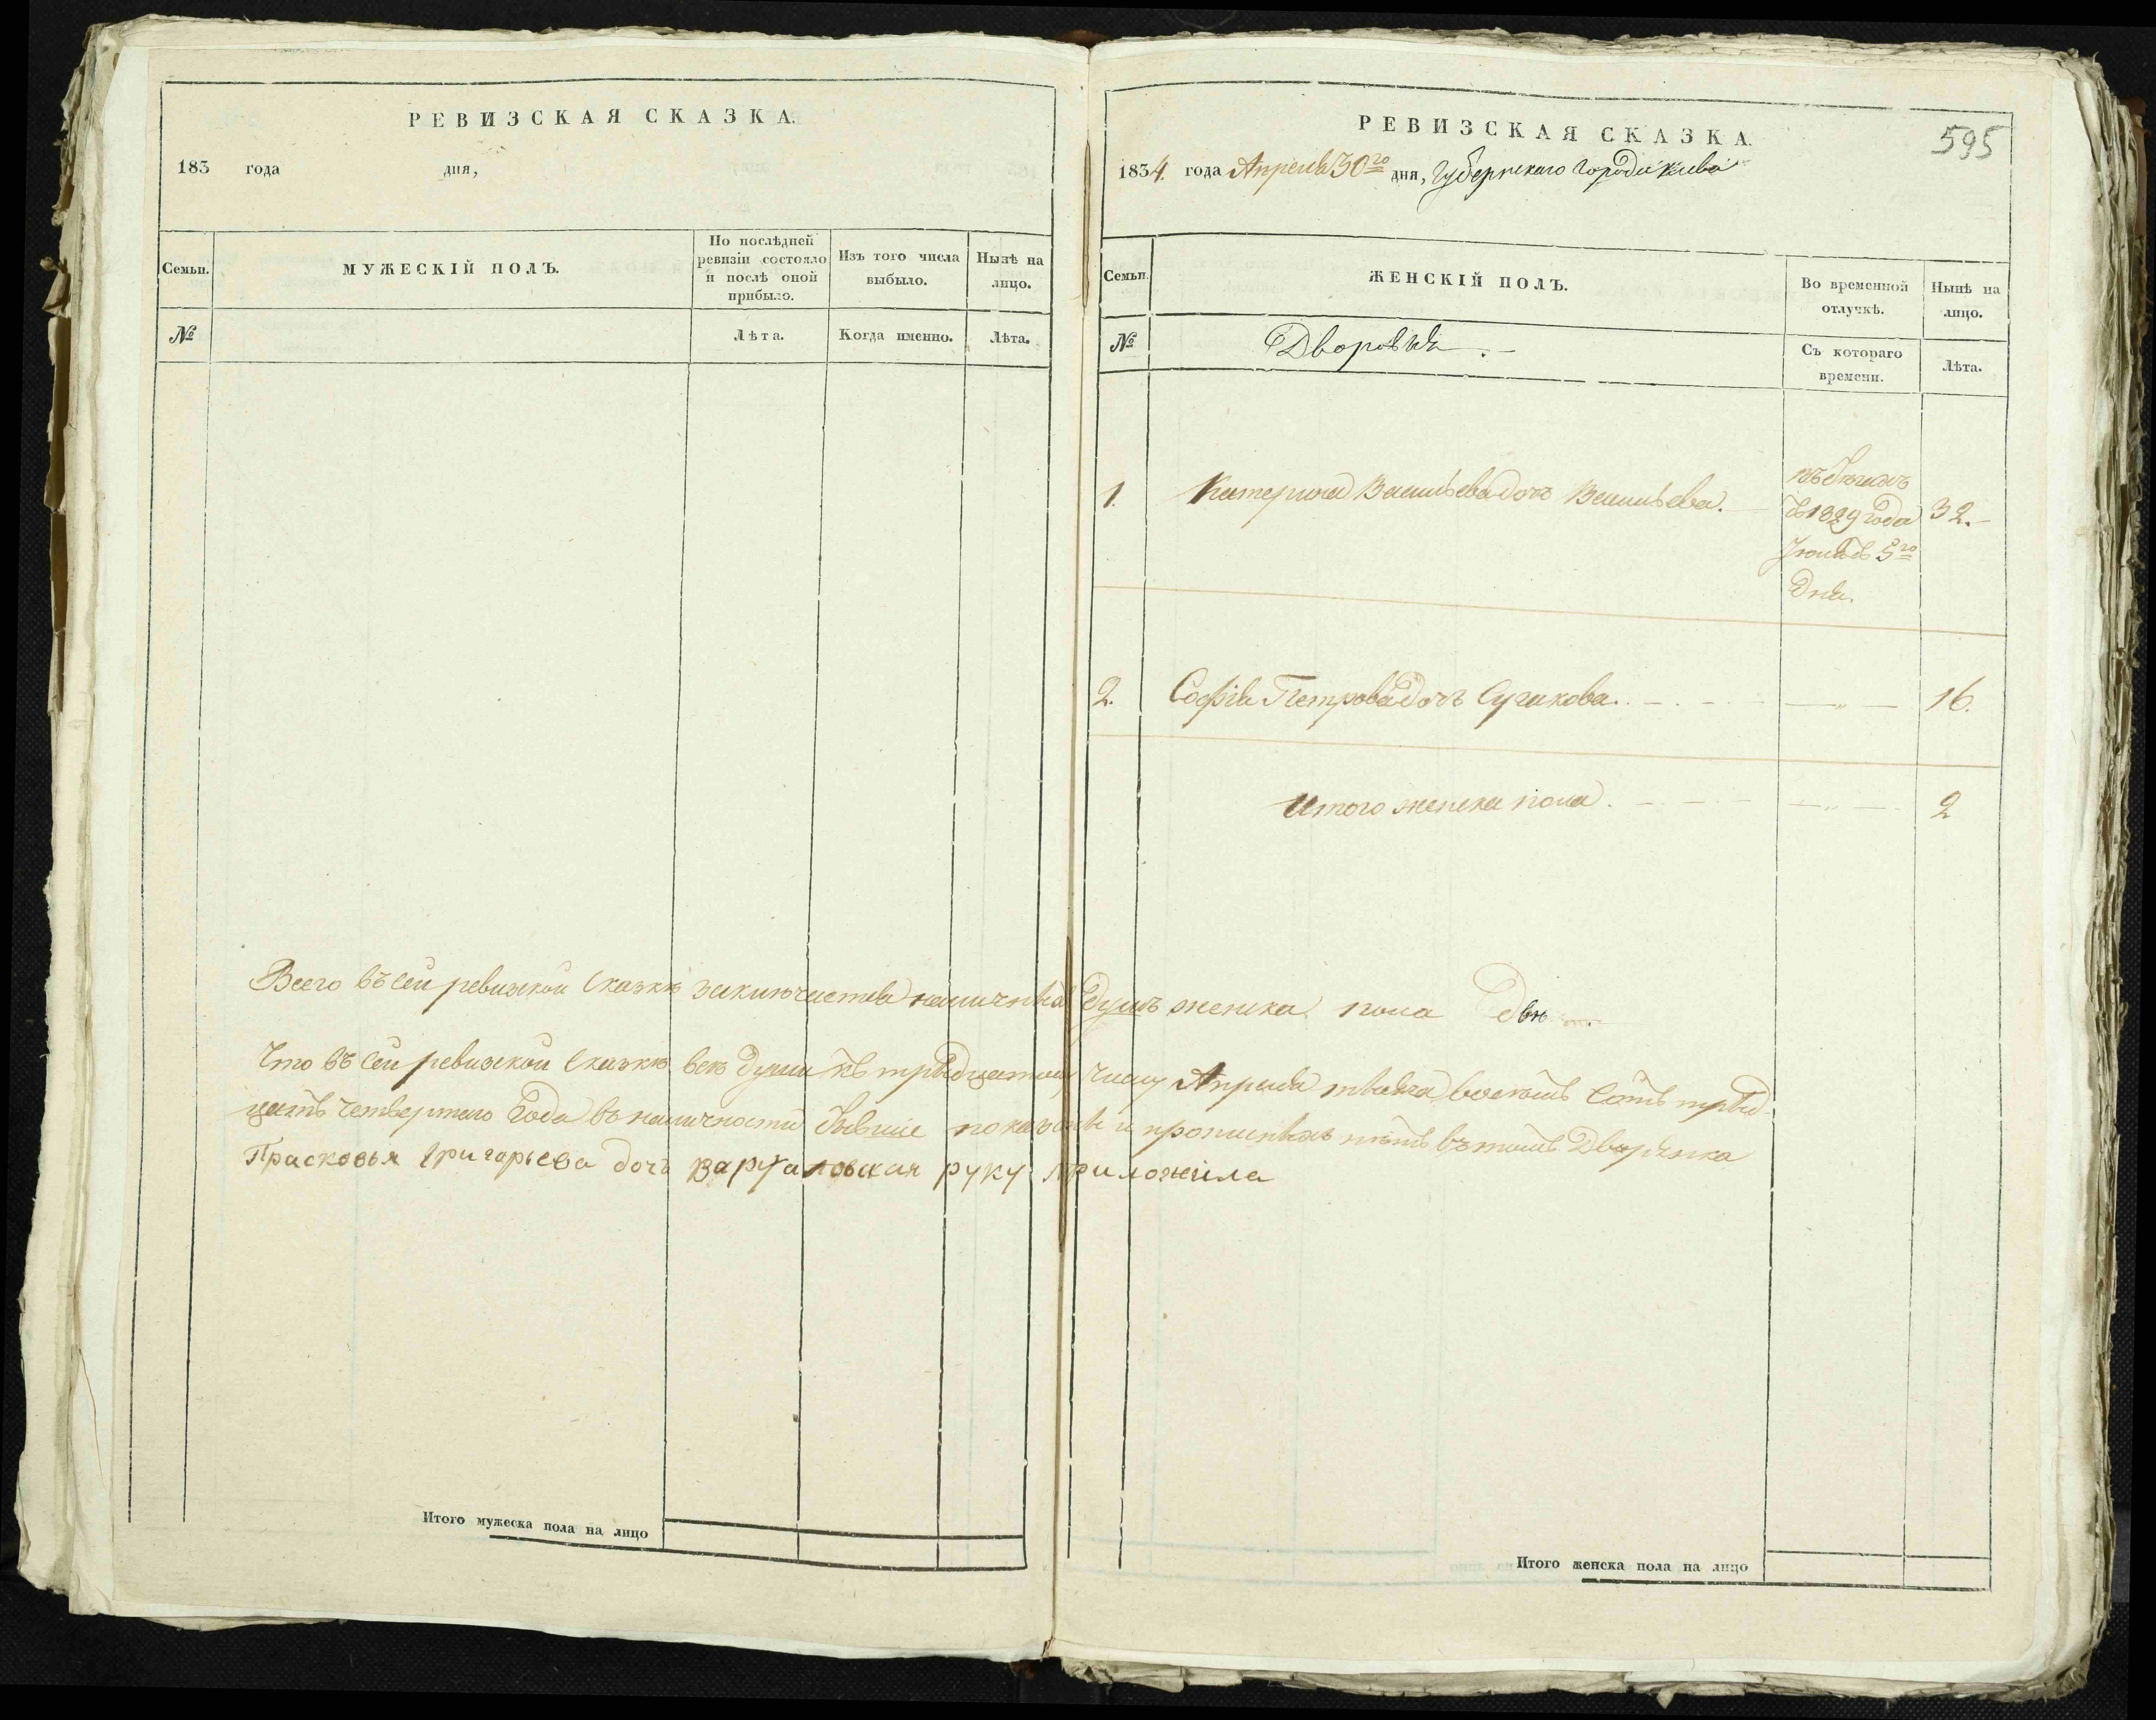 РЕВИЗСКАЯ СКАЗКА.
183 года дня,
Семьи.
МУЖЕСКІЙ ПОЛЪ.
По послѣдней
ревизіи состояло
и послѣ оной
прибыло.
Изъ того числа
выбыло.
Нынѣ на
лицо.
№
Лѣта.
Когда именно.
Лѣта.
РЕВИЗСКАЯ СКАЗКА.
595
1834. года Апреля 30го дня, Губернскаго города Киева
Семьи.
ЖЕНСКІЙ ПОЛЪ.
Во временной
отлучкѣ.
Нынѣ на
лицо.
№
Дворовыя
Съ котораго
времени.
Лѣта.
1. Катерина Васильева дочь Васильева. 32.
въ бѣгахъ
съ 1829 года
5го
дня.
2. Софія Петрова дочь Сучакова. 16.
Итого женска пола 2
Всего въ сей ревизкой сказкѣ заключается наличныхъ душъ женска пола двѣ
Что въ сей ревизкой сказкѣ всѣ души къ трыдцатому числу Апреля тысяча восемь сотъ трыд-
цать четвертого года въ наличности бывшие показаны и прописныхъ нѣтъ въ томъ Дворянка
Прасковья Григорьева дочь руку приложила
Итого мужеска пола на лицо
Итого женска пола на лицо